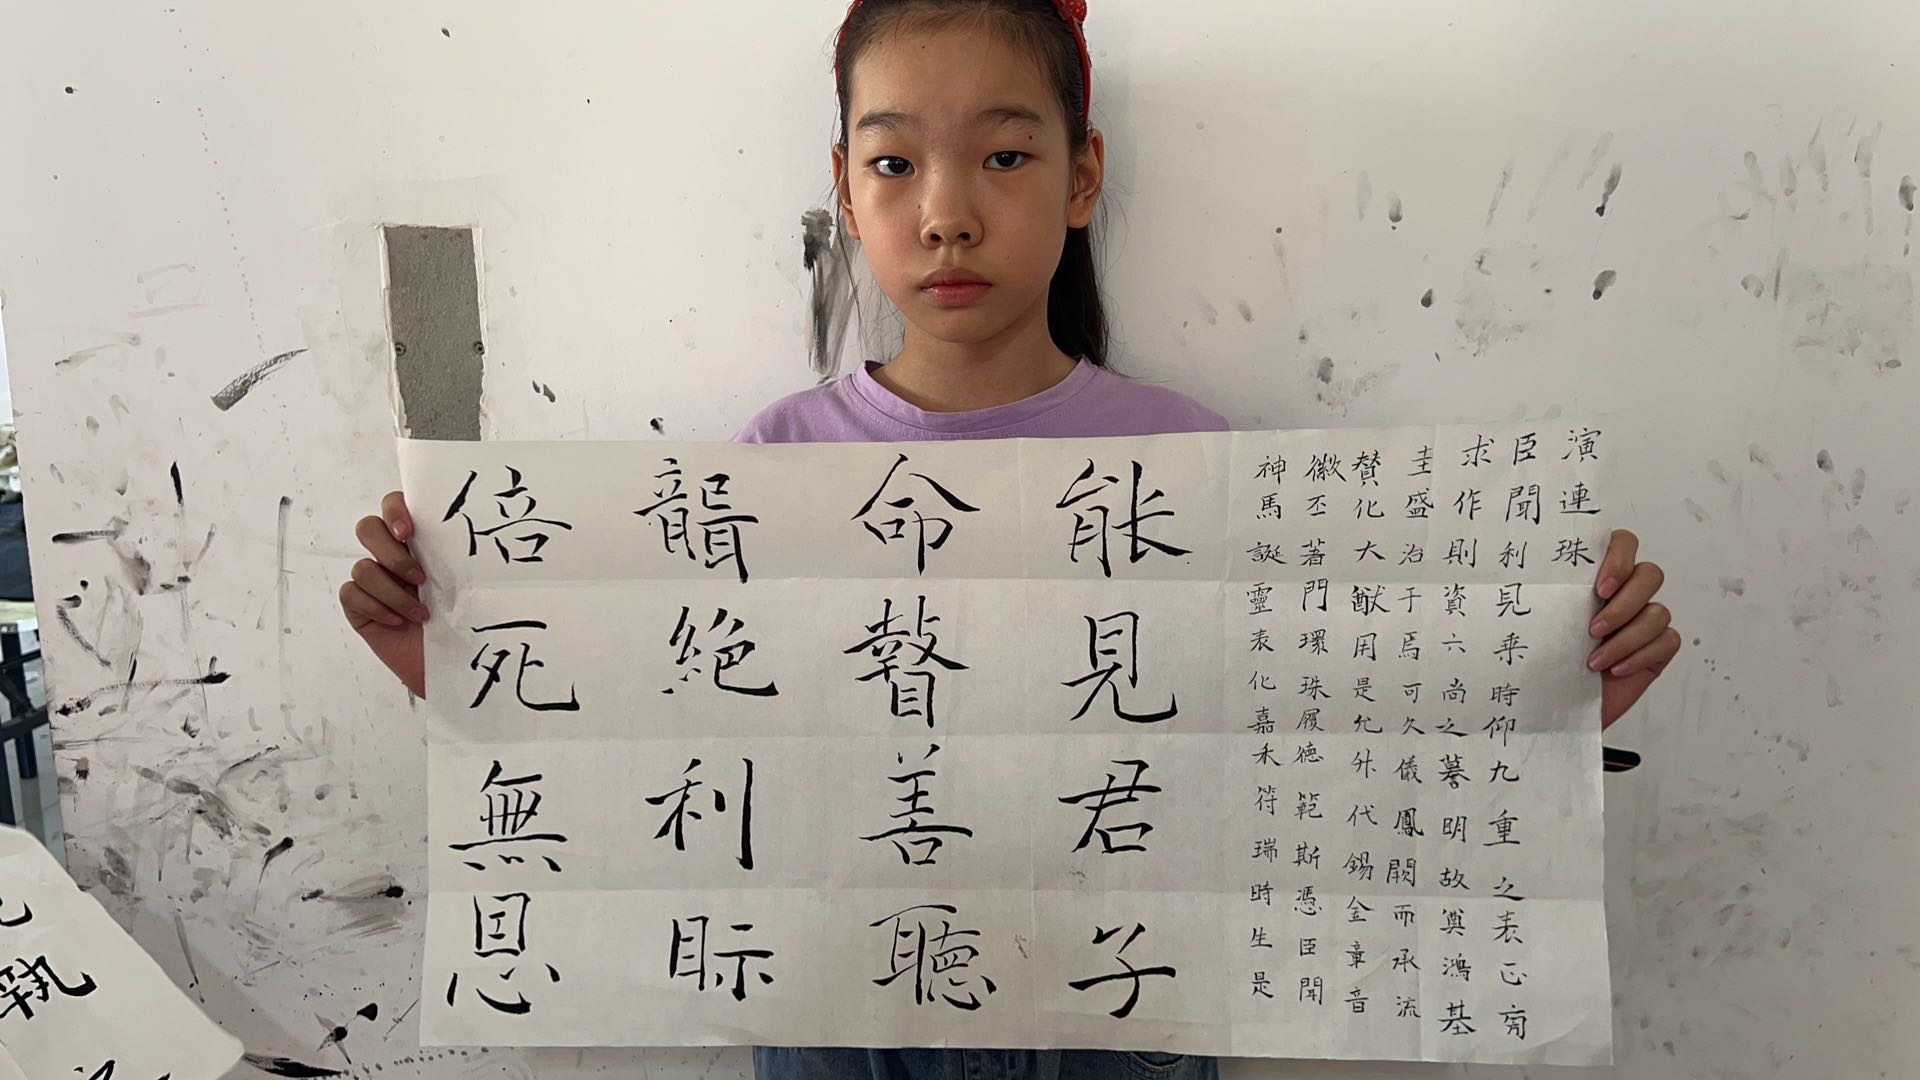 演連珠
臣聞利見乗時仰九重之表正
求作則資六尚之謩明故奠鴻基
圭盛治于焉可久儀鳳闕而承流
賛化大猷用是允升代錫金章音
徽丕著門環珠履德範斯憑臣聞
神馬誕靈表化嘉禾符瑞時生是
能見君子
命瞽善聽
聾絶利眎
倍死無恩
執